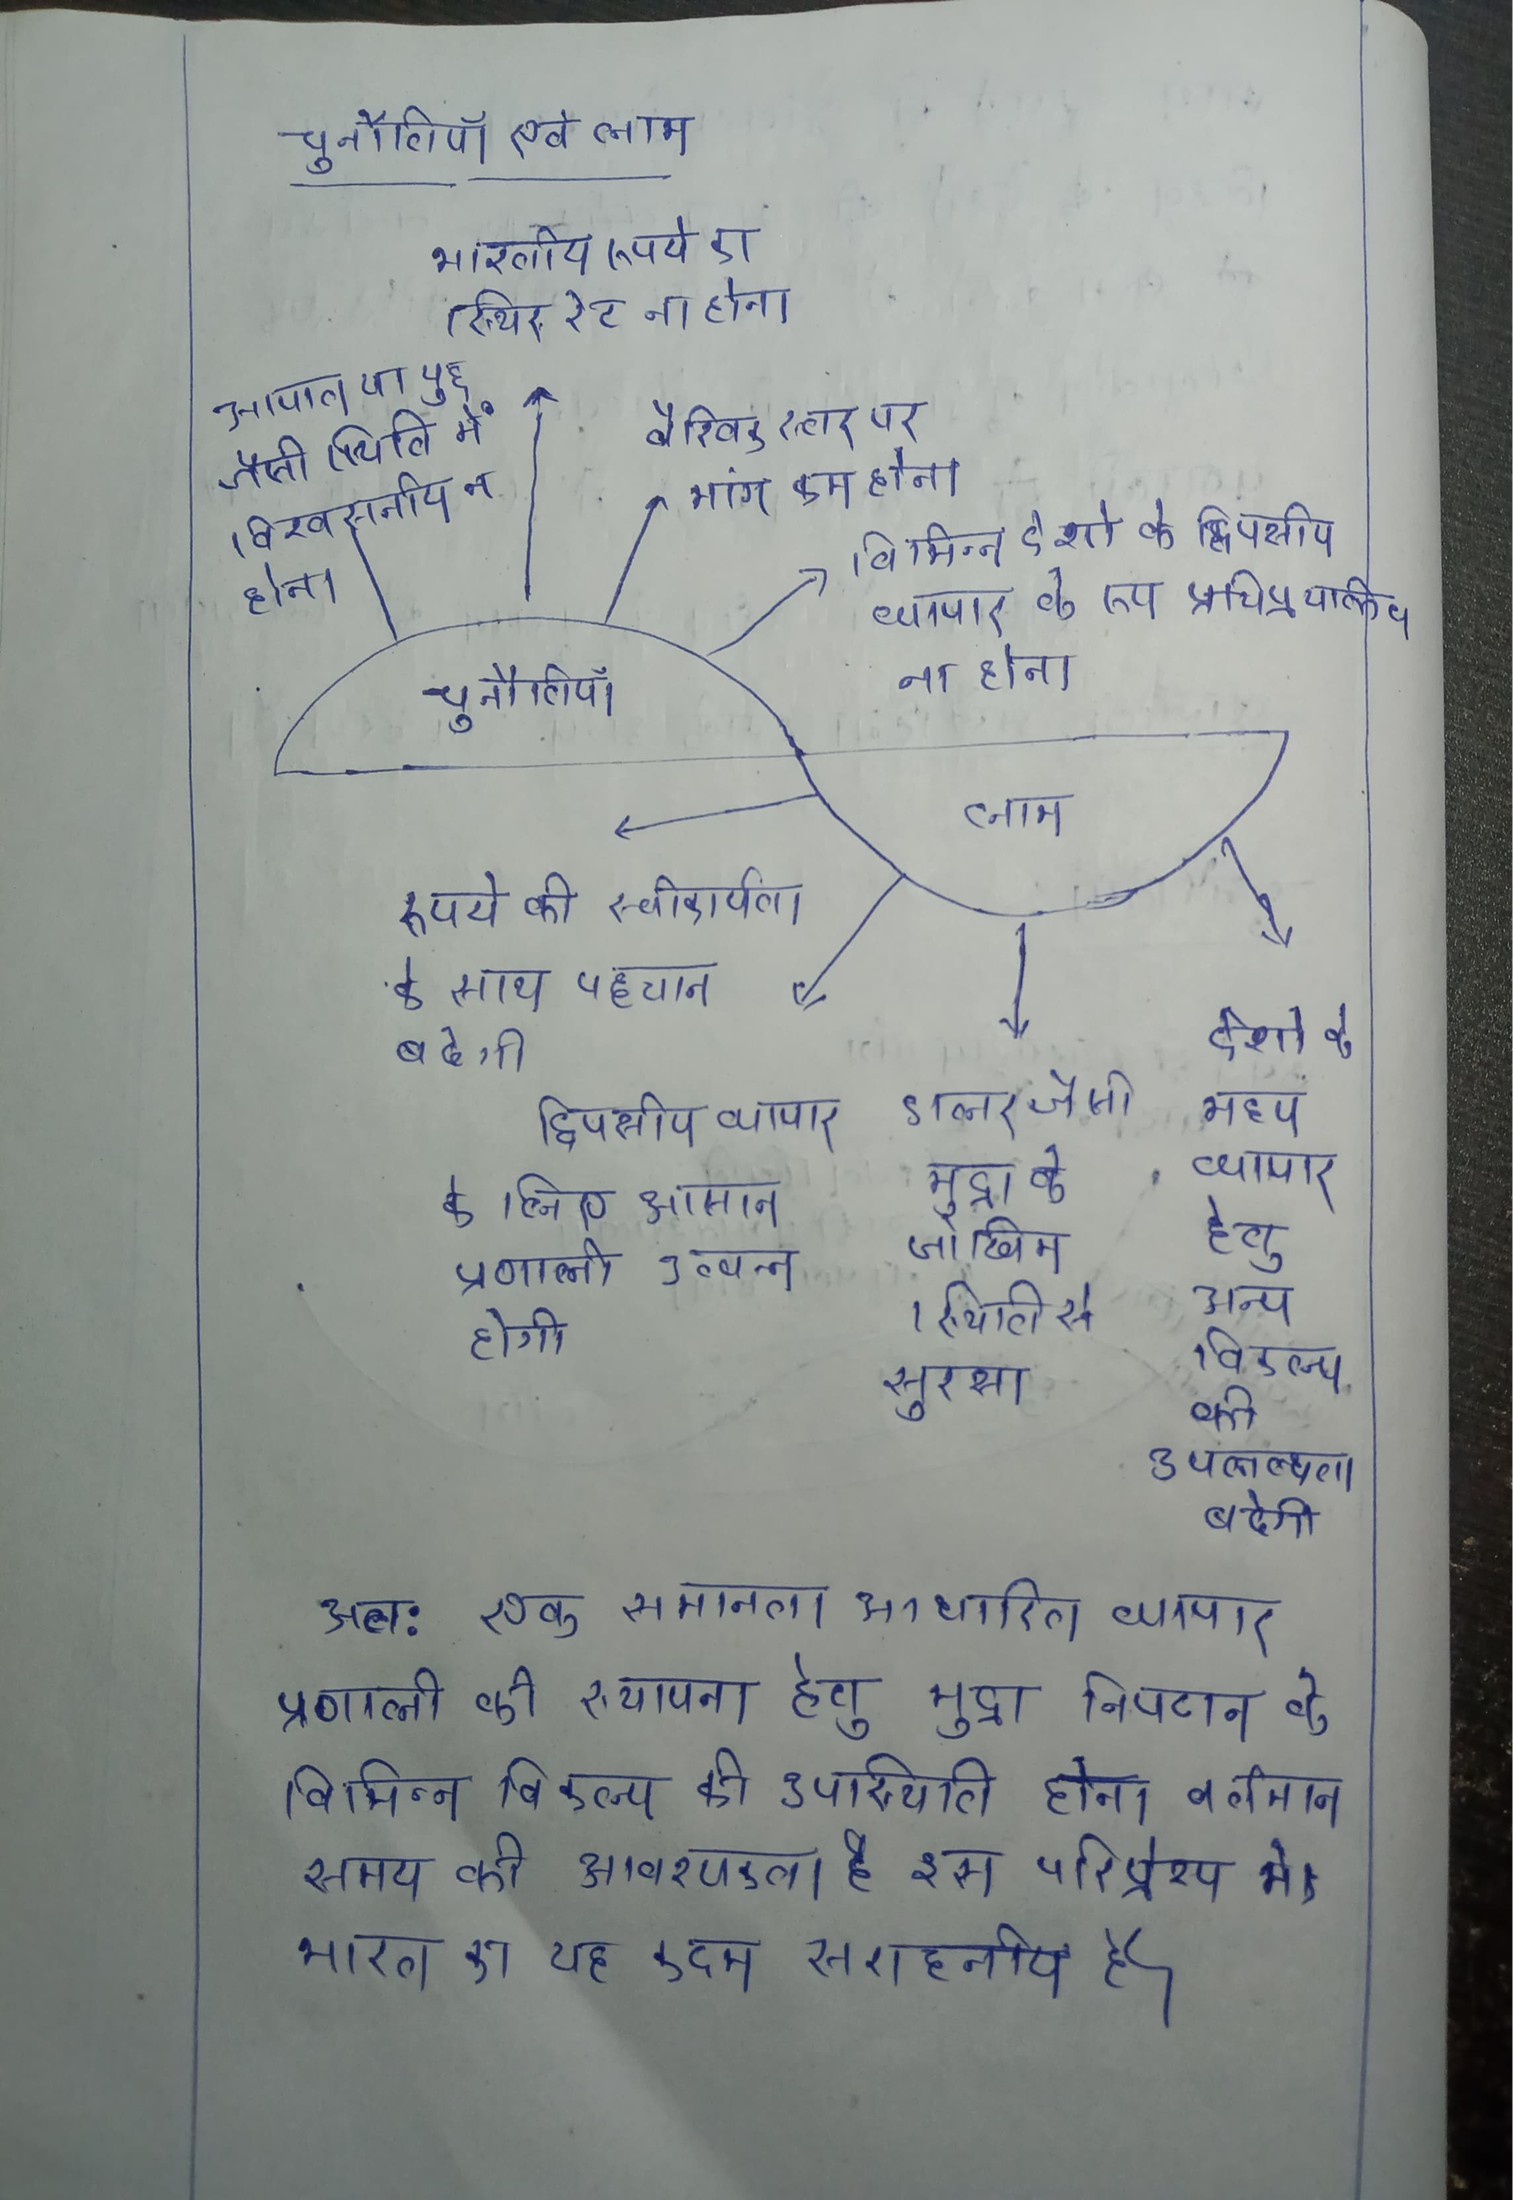 चुनौतियाँ एवं लाभ
भारतीय रूपये का
स्थिर रेट ना होना
आपात या युद्ध
जैसी स्थिति में
विश्वसनीय न
होना
वैश्विक स्तर पर
मांग कम होना
विभिन्न देशो के द्विपक्षीय
व्यापार के रूप
ना होना
चुनौतियाँ
लाभ
रूपये की स्वीकार्यता
के साथ पहचान
बढेगी
द्विपक्षीय व्यापार
के लिए आसान
प्रणाली उत्पन्न
होगी
डालर जैसी
मुद्रा के
जोखिम
स्थिति से
सुरक्षा
देशो के
मध्य
व्यापार
हेतु
अन्य
विकल्प
की
उपलब्धता
बढेगी
अतः एक समानता आधारित व्यापार
प्रणाली की स्थापना हेतु मुद्रा निपटान के
विभिन्न विकल्प की उपस्थिति होना वर्तमान
समय की आवश्यकता है इस परिप्रेश्य में
भारत का यह कदम सराहनीय है।